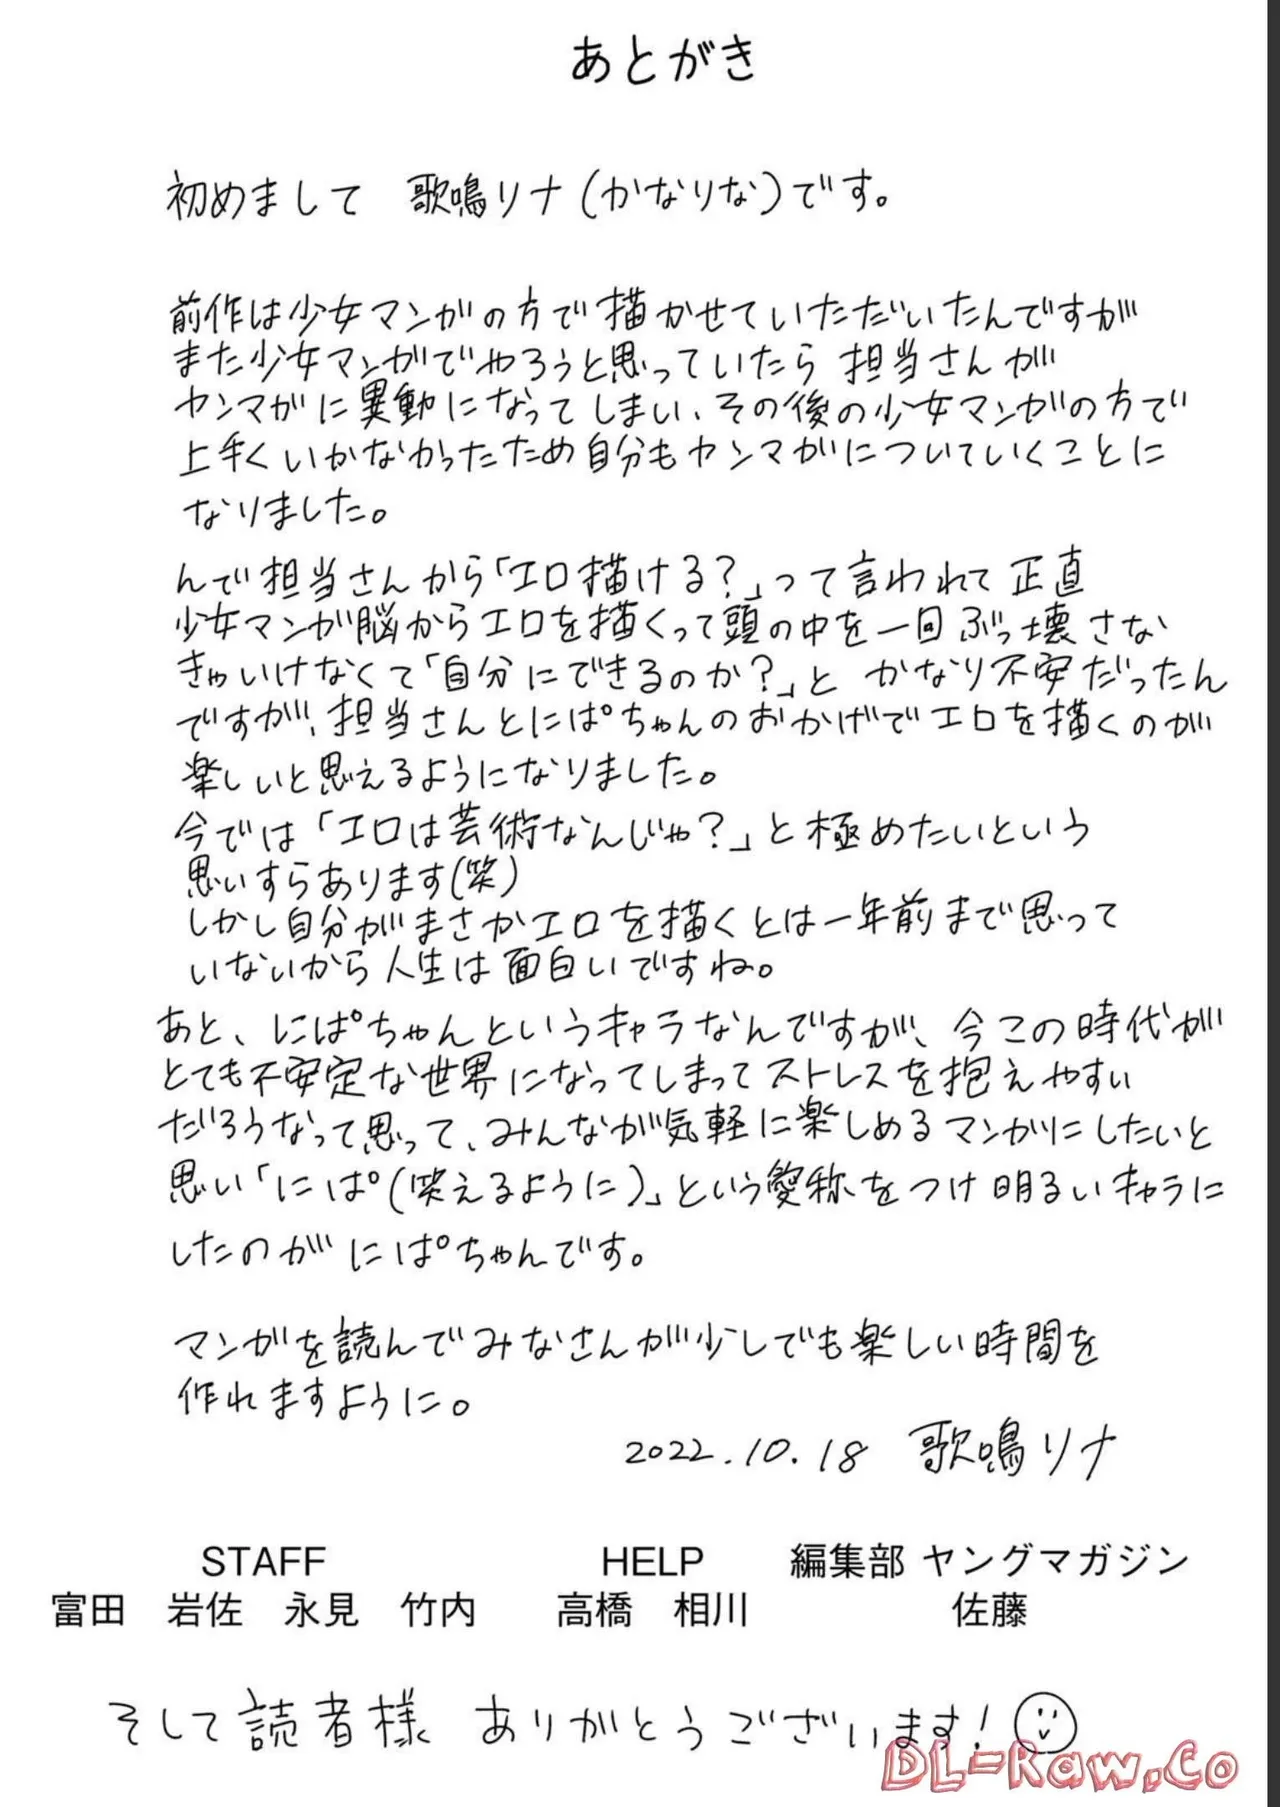 あとがき
初めまして 歌鳴リナ(かなりな)です。
前作は少女マンガの方で描かせていただいたんですが
また少女マンガでやろうと思っていたら 担当さんが
ヤンマガに異動になってしまい、その後の少女マンガの方で
上手くいかなかったため自分もヤンマガについていくことに
なりました。
んで担当さんから「エロ描ける?」って言われて正直
少女マンガ脳からエロを描くって頭の中を一回ぶっ壊さな
きゃいけなくて「自分にできるのか?」と かなり不安だったん
ですが、担当さんとにぱちゃんのおかげでエロを描くのが
楽しいと思えるようになりました。
今では「エロは芸術なんじゃ?」と極めたいという
思いすらあります(笑)
しかし自分がまさかエロを描くとは一年前まで思って
いないから人生は面白いですね。
あと、にぱちゃんというキャラなんですが、今この時代が
とても不安定な世界になってしまってストレスを抱えやすい
だろうなって思って、みんなが気軽に楽しめるマンガにしたいと
思い「にぱ(笑えるように)」という愛称をつけ明るいキャラに
したのがにぱちゃんです。
マンガを読んでみなさんが少しでも楽しい時間を
作れますように。
2022.10.18 歌鳴リナ
STAFF HELP 編集部 ヤングマガジン
富田 岩佐 永見 竹内 高橋 相川 佐藤
そして読者様 ありがとうございます!
DL-Raw.Co